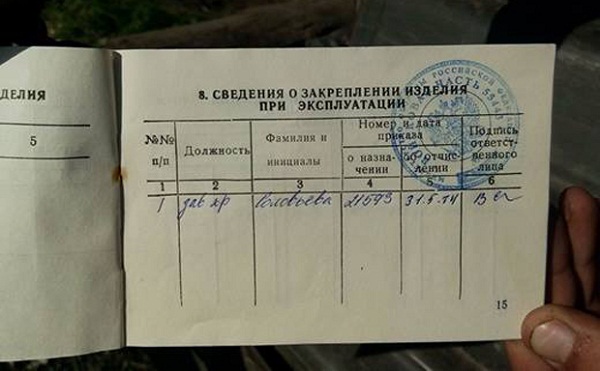 ДЕЛИЯ
5
8. СВЕДЕНИЯ О ЗАКРЕПЛЕНИИ ИЗДЕЛИЯ
ПРИ ЭКСПЛУАТАЦИИ
№№ п/п
Должность
Фамилия и инициалы
Номер и дата приказа
о назна-
чении
об отчис-
лении
Подпись
ответст-
венного
лица
1 2 3 4 5 6
1 зав хр Соловьева 21593 31.5.14
15
РОССИЙСКОЙ
ЧАСТЬ